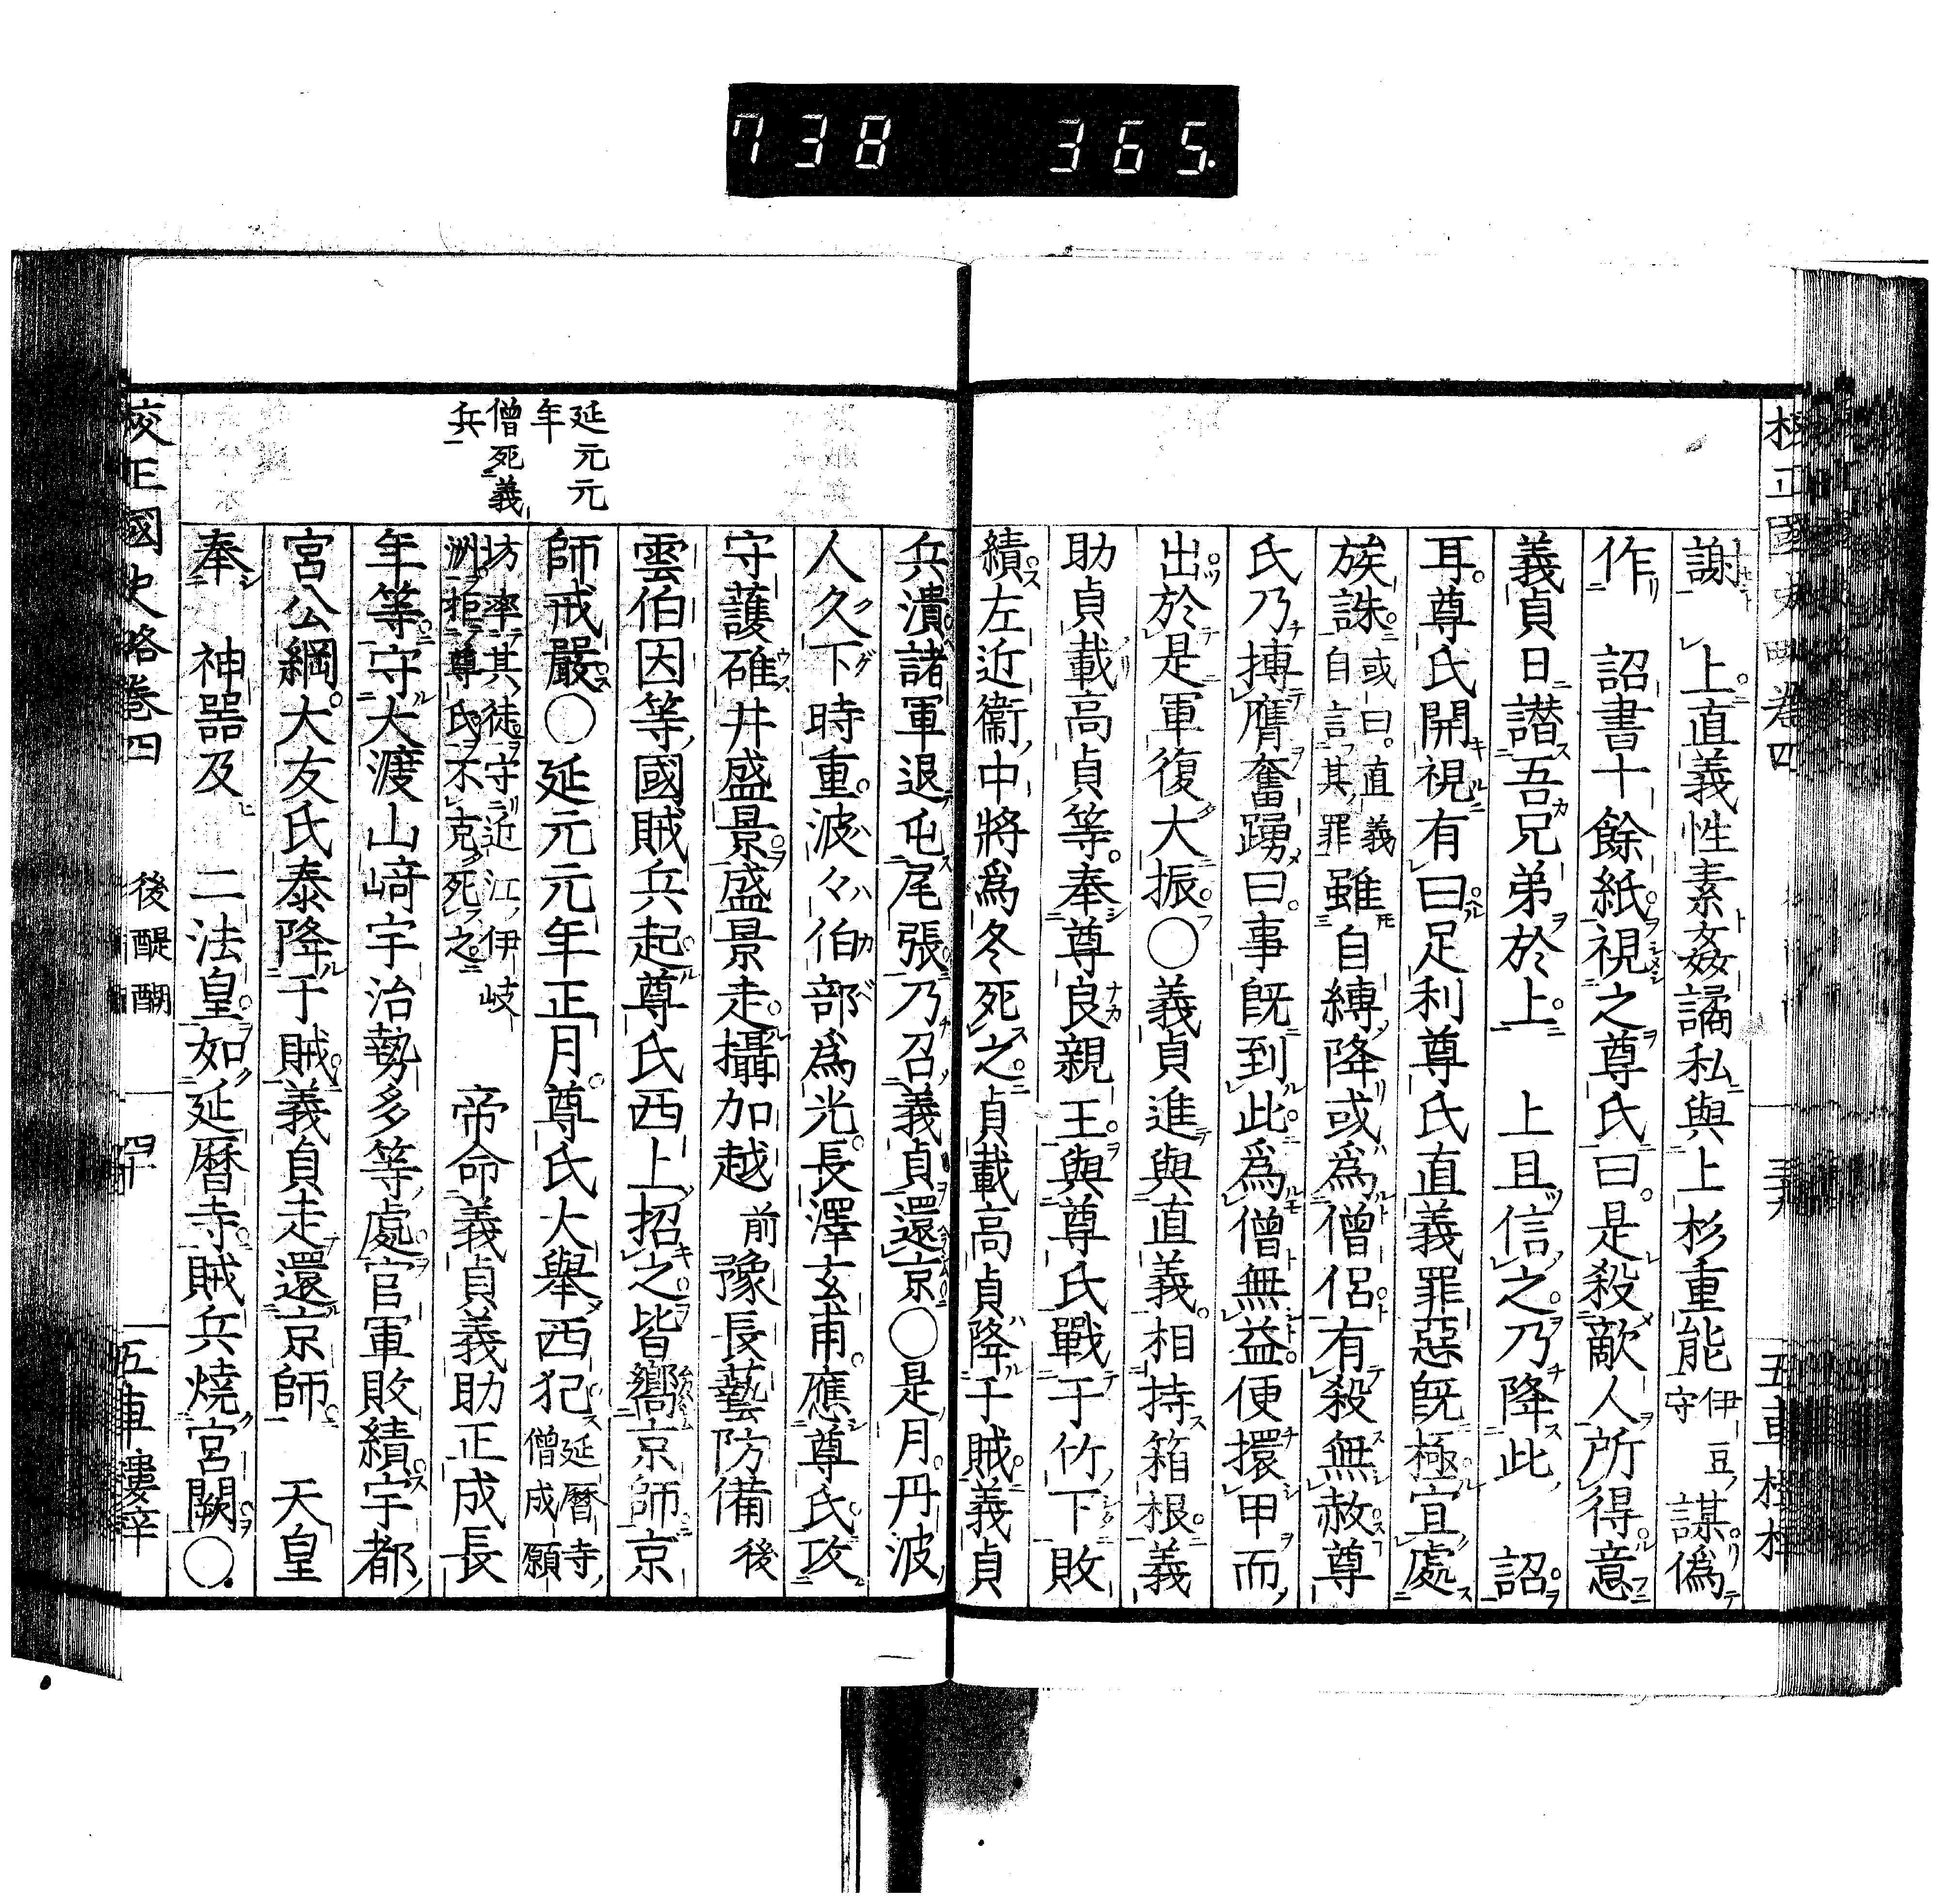 738 365.
校正國史略卷四 三十九 五車樓梓
謝 上直義性素姦譎私與上杉重能伊豆守謀僞
作 詔書十餘紙視之尊氏曰是殺敵人所得意
義貞日譖吾兄弟於上 上且信之乃降此 詔
耳尊氏開視有曰足利尊氏直義罪惡既極宜處
族誅或曰直義自言其罪雖自縛降或爲僧侶有殺無赦尊
氏乃摶膺奮踴曰事既到此爲僧無益便擐甲而
出於是軍復大振〇義貞進與直義相持箱根義
助貞載高貞等奉尊良親王與尊氏戰于竹下敗
績左近衞中將爲冬死之貞載高貞降于賊義貞
兵潰諸軍退屯尾張乃召義貞還京〇是月丹波
人久下時重波々伯部爲光長澤玄甫應尊氏攻
守護碓井盛景盛景走攝加越前豫長藝防備後
雲伯因等國賊兵起尊氏西上招之皆嚮京師京
師戒嚴〇延元元年正月尊氏大擧西犯延曆寺僧成願
坊率其徒守近江伊岐洲拒尊氏不克死之 帝命義貞義助正成長
年等守大渡山﨑宇治勢多等處官軍敗績宇都
宮公綱大友氏泰降于賊義貞走還京師 天皇
奉 神噐及 二法皇如延曆寺賊兵燒宮闕〇
延元元
年
僧死義
兵
校正國史略卷四 後醍醐 四十 五車樓梓